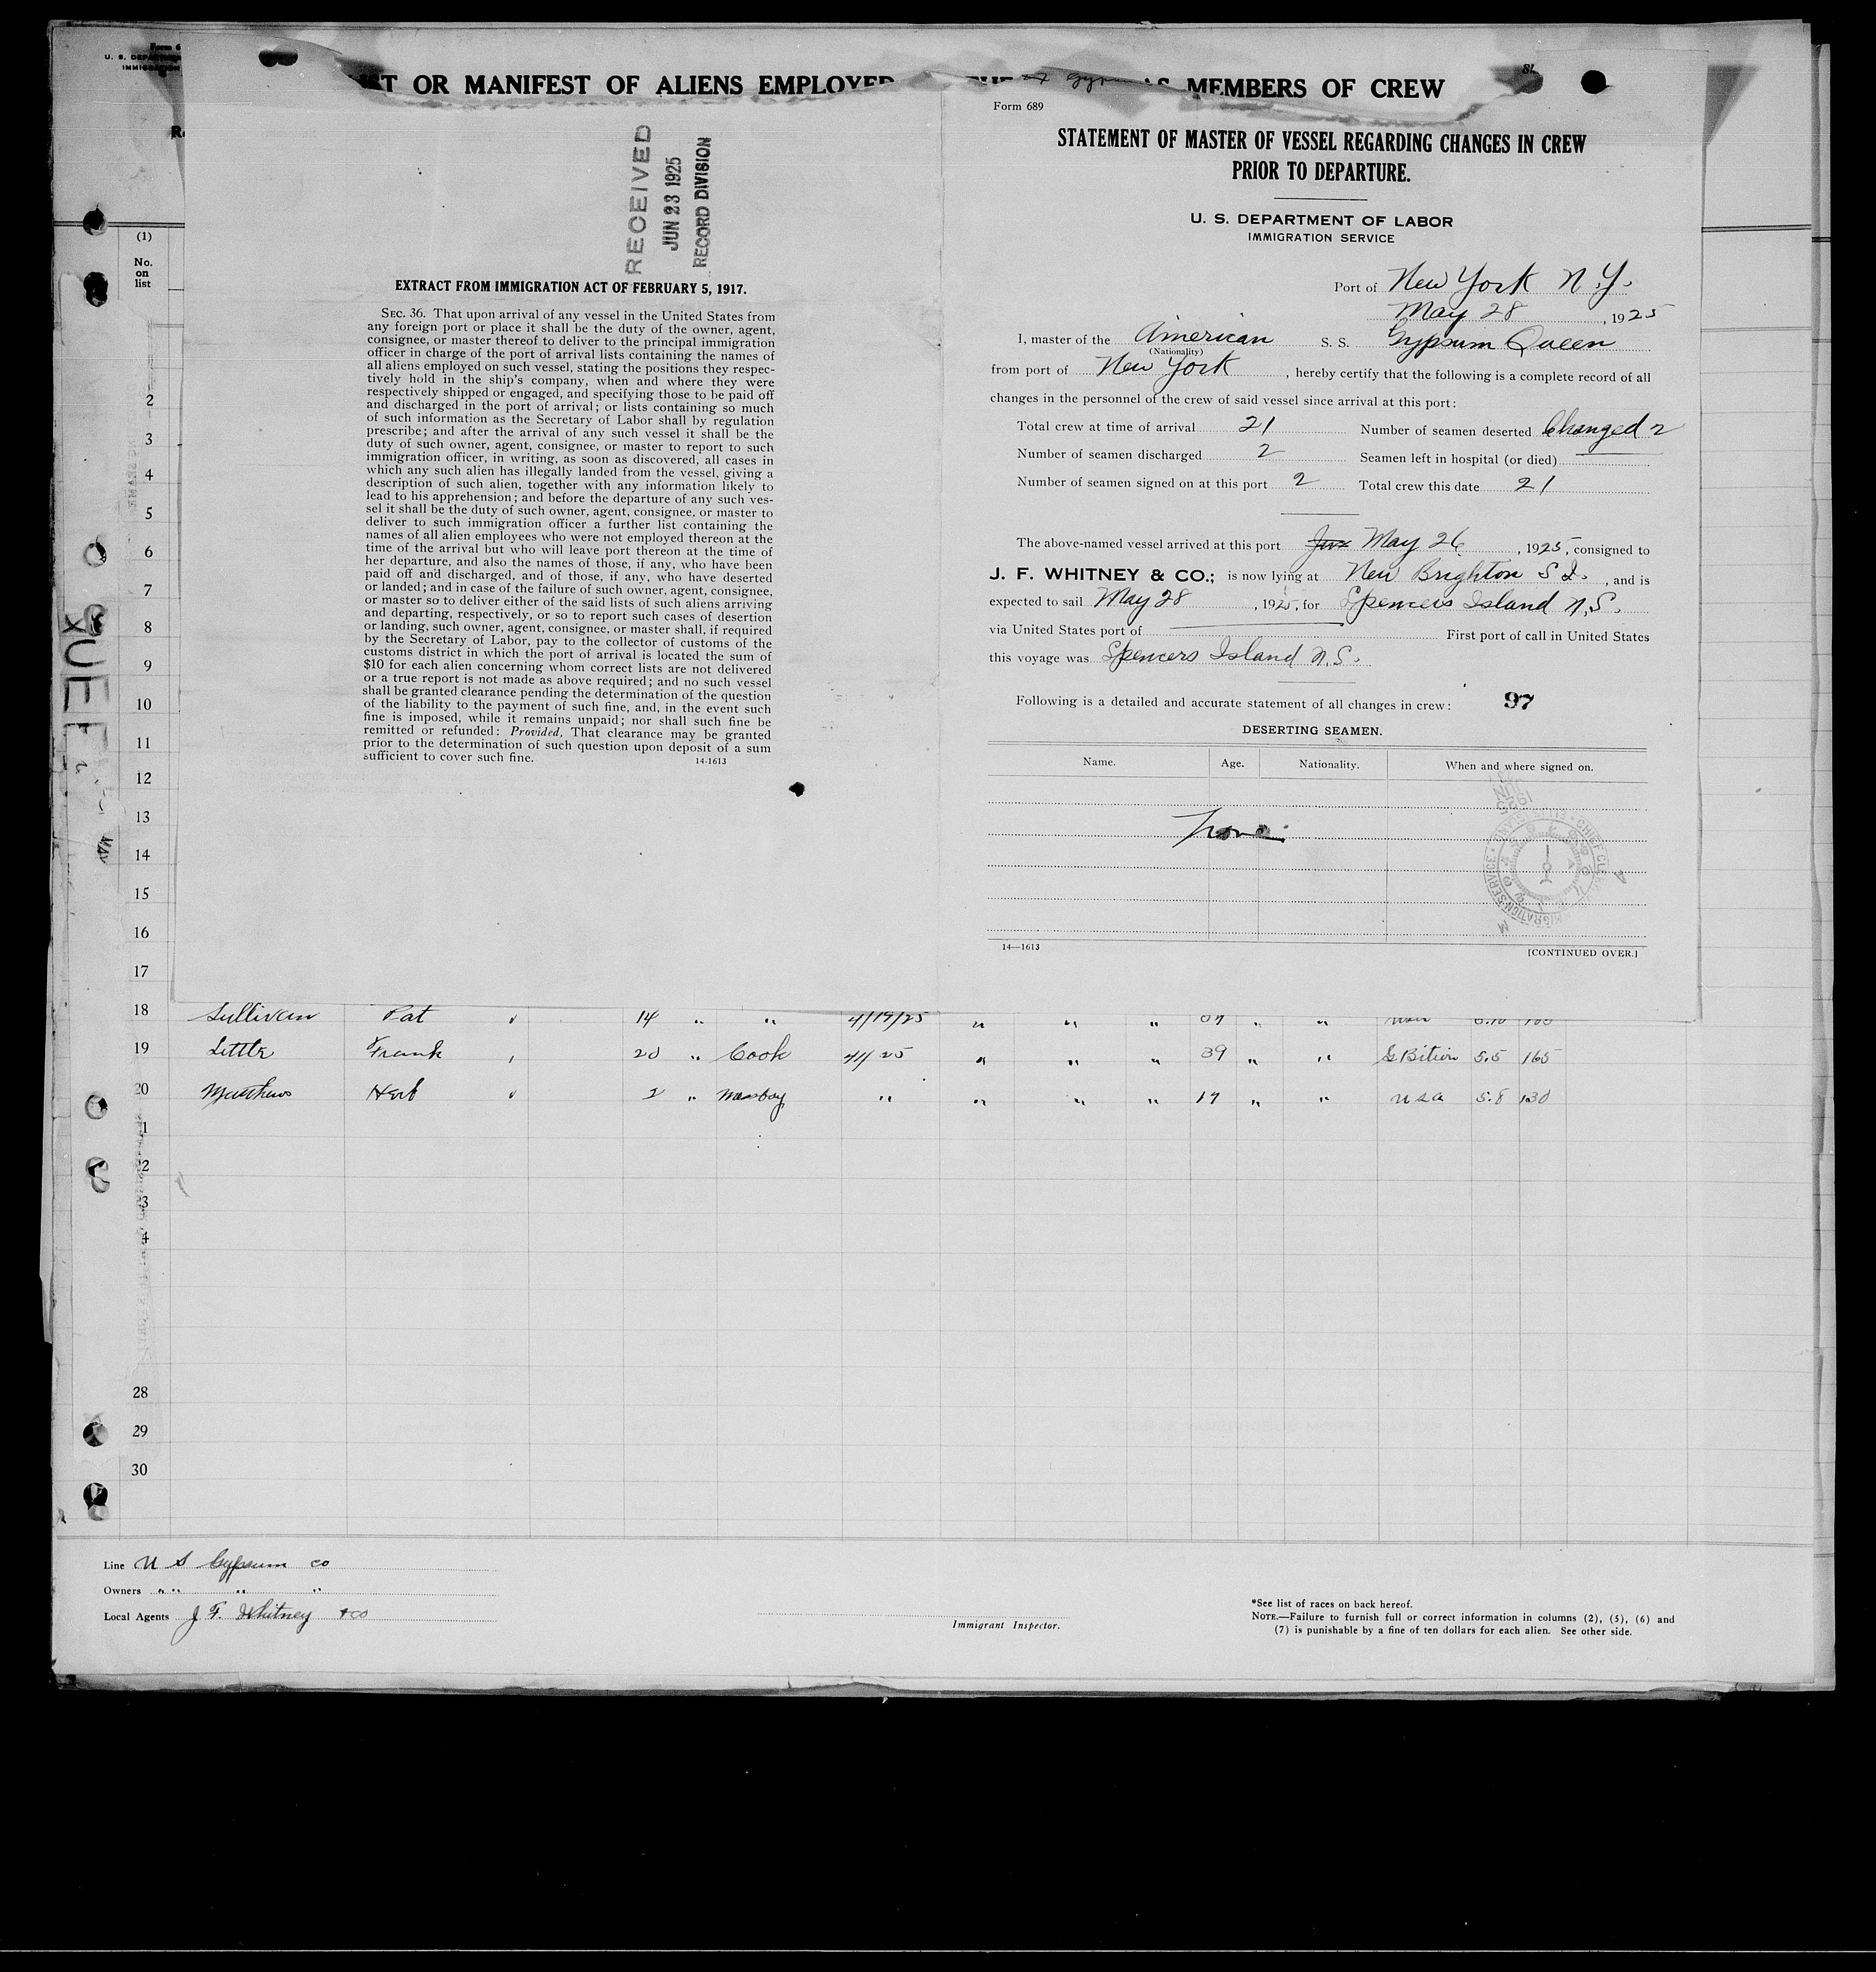 LIST OR MANIFEST OF ALIENS EMPLOYED AS MEMBERS OF CREW
(1)
No.
on
list
RECEIVED
JUN 23 1925
RECORD DIVISION
EXTRACT FROM IMMIGRATION ACT OF FEBRUARY 5, 1917.
SEC. 36. That upon arrival of any vessel in the United States from
any foreign port or place it shall be the duty of the owner, agent,
consignee, or master thereof to deliver to the principal immigration
officer in charge of the port of arrival lists containing the names of
all aliens employed on such vessel, stating the positions they respec-
tively hold in the ship's company, when and where they were
respectively shipped or engaged, and specifying those to be paid off
and discharged in the port of arrival; or lists containing so much
of such information as the Secretary of Labor shall by regulation
prescribe; and after the arrival of any such vessel it shall be the
duty of such owner, agent, consignee, or master to report to such
immigration officer, in writing, as soon as discovered, all cases in
which any such alien has illegally landed from the vessel, giving a
description of such alien, together with any information likely to
lead to his apprehension; and before the departure of any such ves-
sel it shall be the duty of such owner, agent, consignee, or master to
deliver to such immigration officer a further list containing the
names of all alien employees who were not employed thereon at the
time of the arrival but who will leave port thereon at the time of
her departure, and also the names of those, if any, who have been
paid off and discharged, and of those, if any, who have deserted
or landed; and in case of the failure of such owner, agent, consignee,
or master so to deliver either of the said lists of such aliens arriving
and departing, respectively, or so to report such cases of desertion
or landing, such owner, agent, consignee, or master shall, if required
by the Secretary of Labor, pay to the collector of customs of the
customs district in which the port of arrival is located the sum of
$10 for each alien concerning whom correct lists are not delivered
or a true report is not made as above required; and no such vessel
shall be granted clearance pending the determination of the question
of the liability to the payment of such fine, and, in the event such
fine is imposed, while it remains unpaid; nor shall such fine be
remitted or refunded: Provided, That clearance may be granted
prior to the determination of such question upon deposit of a sum
sufficient to cover such fine. 14-1613
Form 689
STATEMENT OF MASTER OF VESSEL REGARDING CHANGES IN CREW
PRIOR TO DEPARTURE.
U. S. DEPARTMENT OF LABOR
IMMIGRATION SERVICE
Port of New York N.Y.
May 28, 1925
I, master of the American S. S. Gypsum Queen
(Nationality)
from port of New York, hereby certify that the following is a complete record of all
changes in the personnel of the crew of said vessel since arrival at this port:
Total crew at time of arrival 21 Number of seamen deserted Changed 2
Number of seamen discharged 2 Seamen left in hospital (or died)
Number of seamen signed on at this port 2 Total crew this date 21
The above-named vessel arrived at this port May 26, 1925, consigned to
J. F. WHITNEY & CO.; is now lying at New Brighton S I., and is
expected to sail May 28, 1925, for Spencers Island N.S.
via United States port of First port of call in United States
this voyage was Spencers Island N.S.
Following is a detailed and accurate statement of all changes in crew: 97
DESERTING SEAMEN.
Name. Age. Nationality. When and where signed on.
None
14—1613 [CONTINUED OVER.]
2
3
4
5
6
7
8
9
10
11
12
13
14
15
16
17
18 Sullivan Pat 14 " " 4/19/25 " " " " "
19 Little Frank 20 " Cook " " " 39 " " 5.5 165
20 Matthews Herb 2 " Messboy " " " " " " usa 5.8 130
28
29
30
Line U S Gypsum co
Owners " " " "
Local Agents J F. Whitney + co
Immigrant Inspector.
*See list of races on back hereof.
NOTE.—Failure to furnish full or correct information in columns (2), (5), (6) and
(7) is punishable by a fine of ten dollars for each alien. See other side.